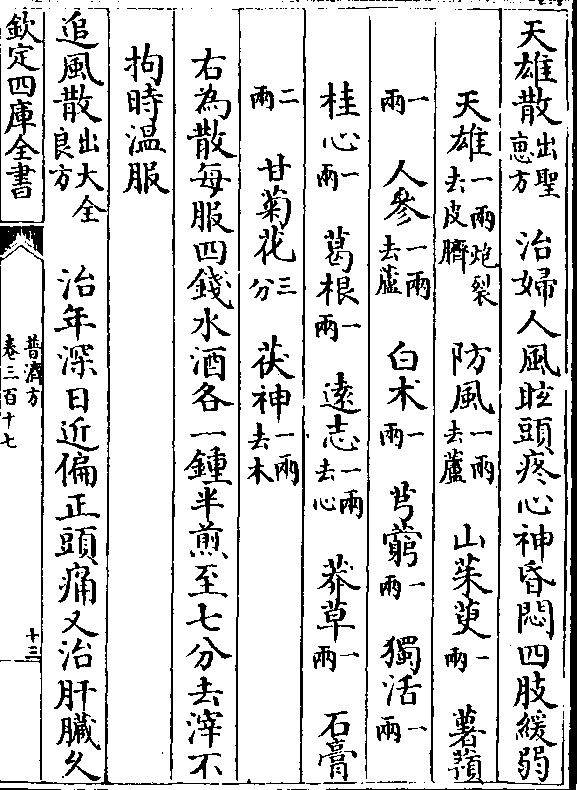 天雄散出聖惠方　治婦人風眩頭疼心神昏悶四肢緩弱
天雄一兩炮裂去皮臍　防風一兩去蘆　山茱萸一兩　薯蕷
一兩　人參一兩去蘆　白术一兩　芎藭一兩　獨活一兩
桂心一兩　葛根一兩　遠志一兩去心　莽草一兩　石膏
二兩　甘菊花三分　茯神一兩去木
右為散每服四錢水酒各一鍾半煎至七分去滓不
拘時温服
追風散出大全良方　治年深日近偏正頭痛又治肝臟久
欽定四庫全書
普濟方
卷三百十七
十三